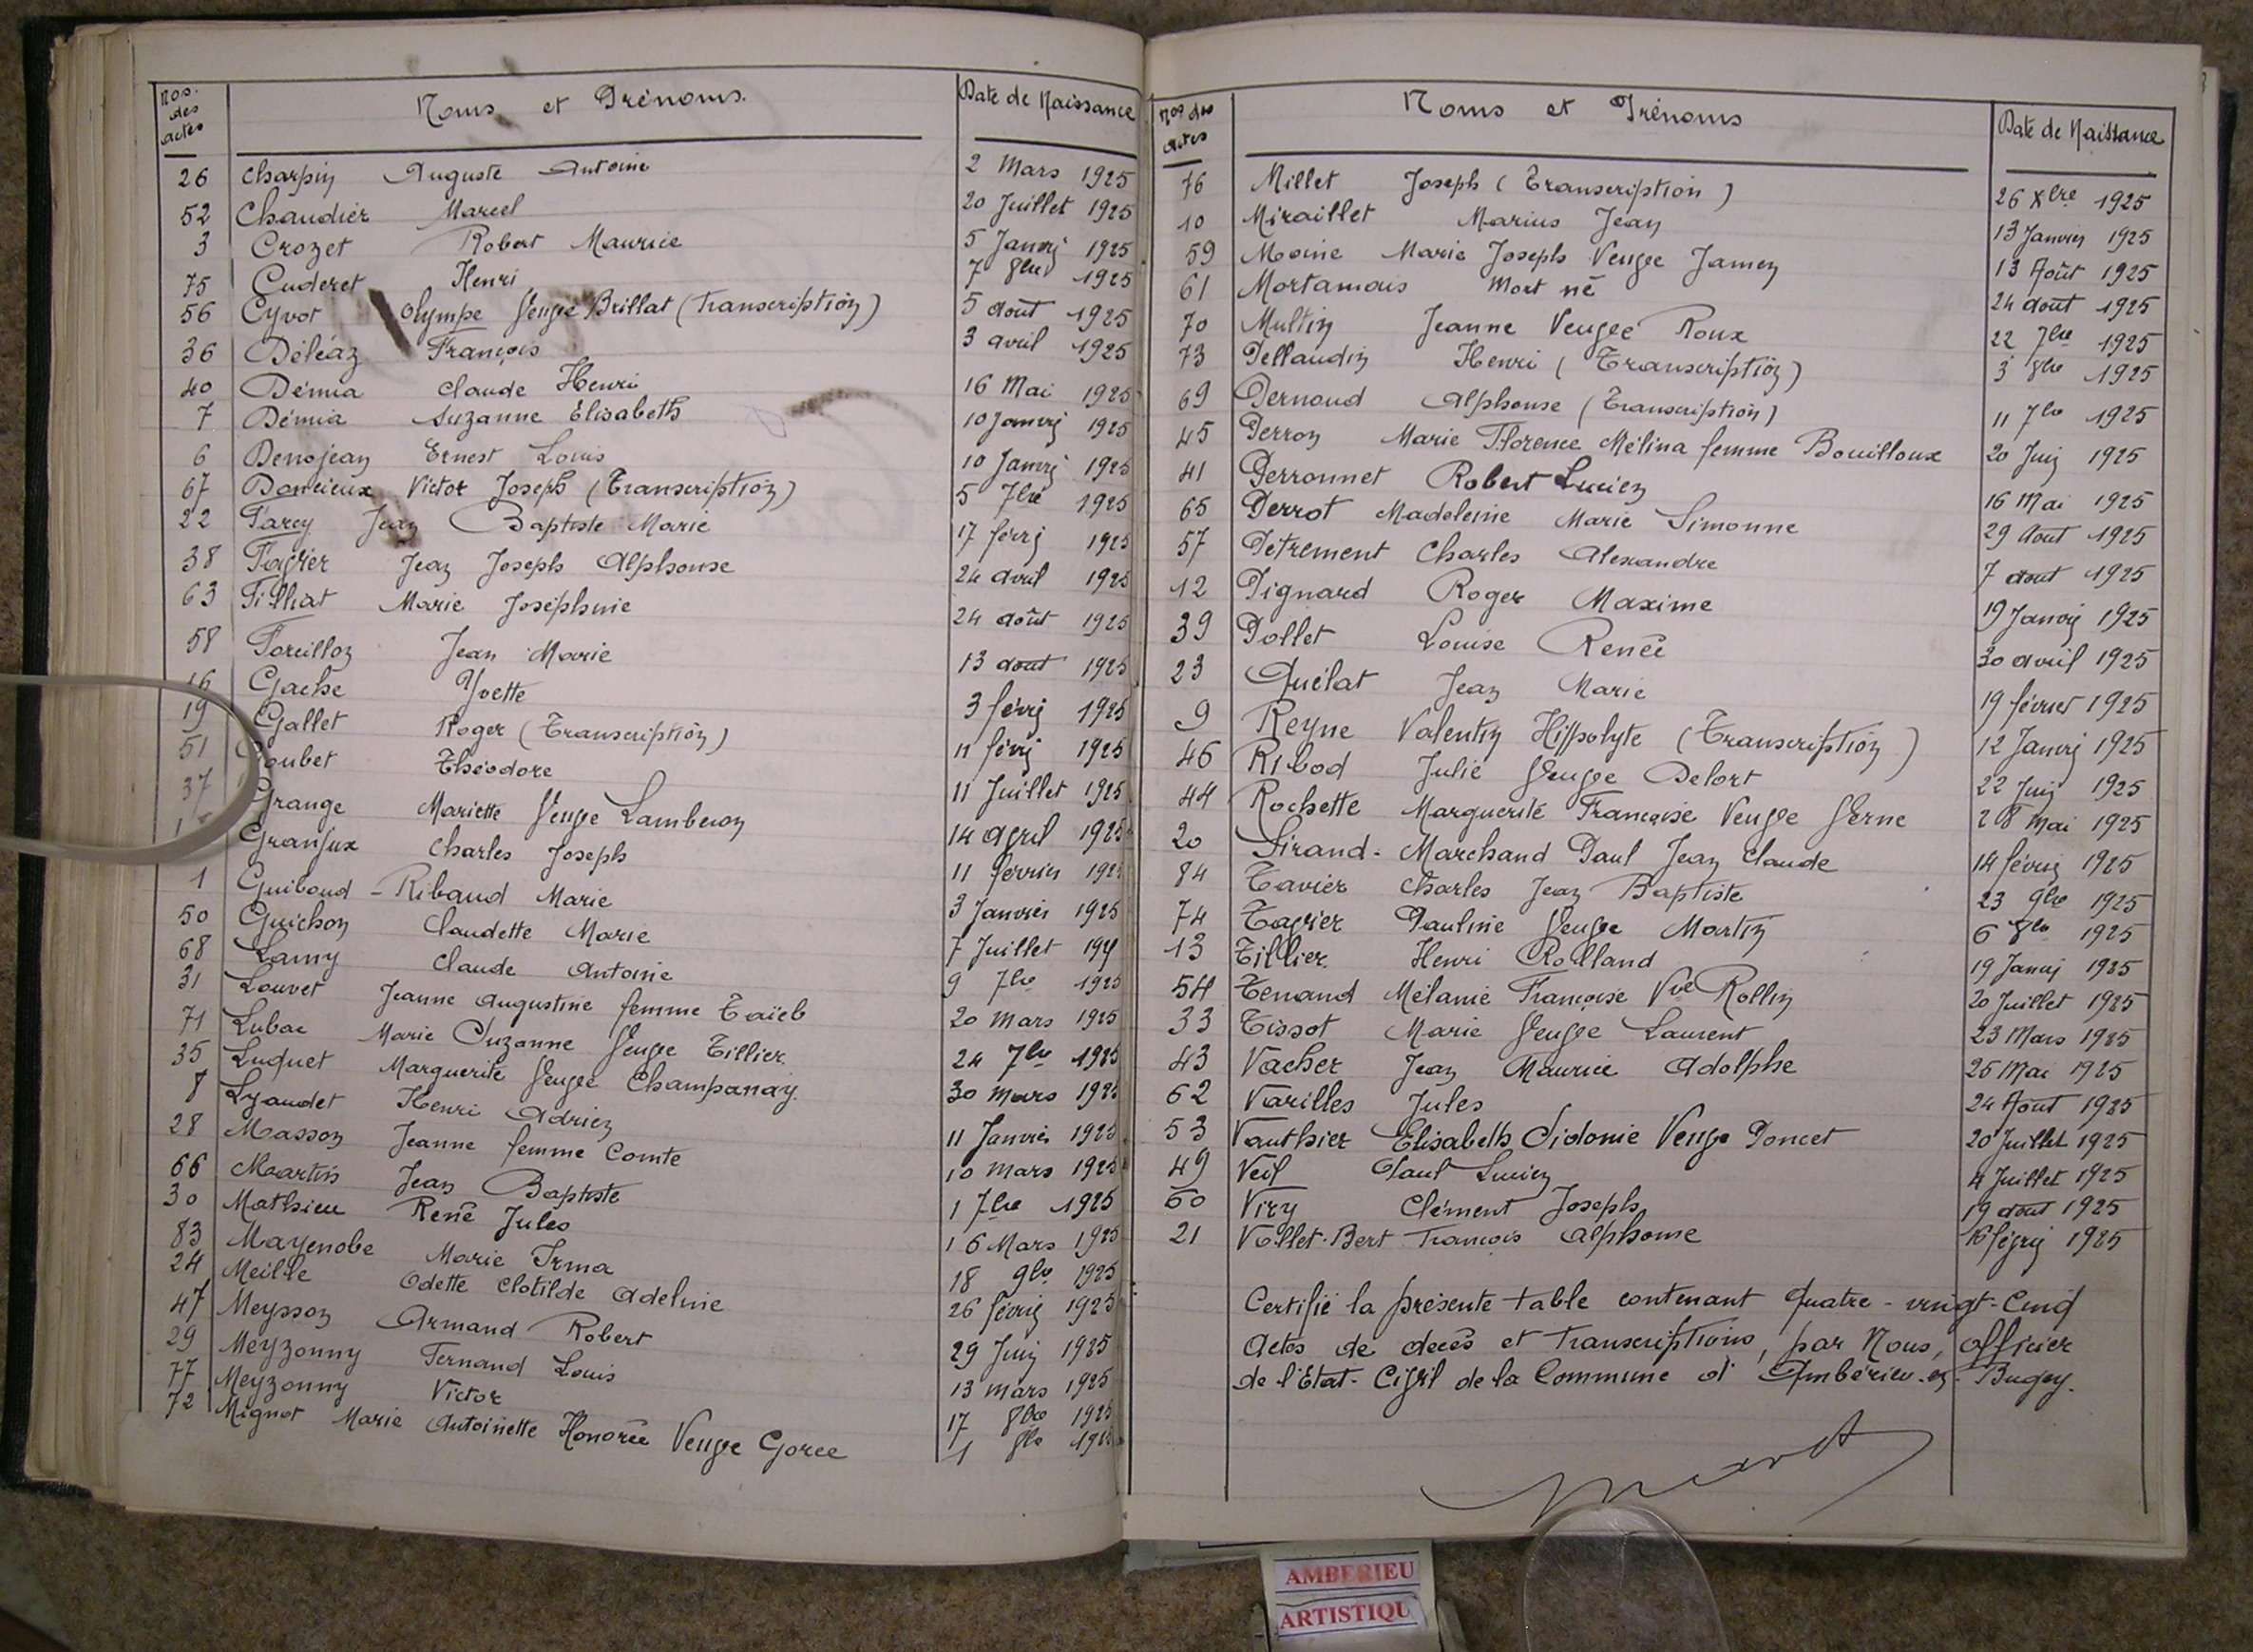 Nos. des actes Noms et Prénoms. Date de Naissance
26 Charpin Auguste Antoine 2 Mars 1925
52 Chaudier Marcel 20 Juillet 1925
3 Crozet Robert Maurice 5 Janvr 1925
75 Cuderet Henri 7 8bre 1925
56 Cyvot Olympe Veuve Brillat (Transcription) 5 août 1925
36 Déléaz François 3 avril 1925
40 Démia Claude Henri 16 Mai 1925
7 Démia Suzanne Elisabeth 10 Janvr 1925
6 Denojean Ernest Louis 10 Janvr 1925
67 Doncieux Victor Joseph (Transcription) 5 7bre 1925
22 Farcy Jean Baptiste Marie 17 févr 1925
38 Favier Jean Joseph Alphonse 24 avril 1925
63 Filliat Marie Joséphine 24 août 1925
58 Foreilloz Jean Marie 13 août 1925
16 Gache Yvette 3 févr 1925
19 Gallet Roger (Transcription) 11 févr 1925
51 Goubet Théodore 11 Juillet 1925
37 Grange Mariette Veuve Lamberon 14 avril 1925
Granjux Charles Joseph 11 février 1925
1 Guiboud-Ribaud Marie 3 Janvier 1925
50 Guichon Claudette Marie 7 Juillet
68 Lamy Claude Antoine 9 7bre 1925
31 Louvet Jeanne Augustine femme Taïeb 20 mars 1925
71 Lubac Marie Suzanne Veuve Tillier 24 7bre 1925
35 Luquet Marguerite Veuve Champanay 30 mars 1925
8 Lyaudet Henri Adrien 11 Janvier 1925
28 Masson Jeanne femme Comte 10 mars 1925
66 Martin Jean Baptiste 1 7bre 1925
30 Mathieu René Jules 16 Mars 1925
83 Mayenobe Marie Irma 18 9bre 1925
24 Meille Odette Clotilde Adeline 26 févrie 1925
47 Meysson Armand Robert 29 Juin 1925
29 Meyzonny Fernand Louis 13 mars 1925
77 Meyzonny Victor 17 8bre 1925
72 Mignot Marie Antoinette Honorée Veuve Goree 1 8bre 1925
Nos des actes Noms et Prénoms Date de Naissance
76 Millet Joseph (Transcription) 26 Xbre 1925
10 Miraillet Marius Jean 13 Janvier 1925
59 Moine Marie Joseph Veuve Jamen 13 Août 1925
61 Mortamais Mort né 24 août 1925
70 Multin Jeanne Veuve Roux 22 7bre 1925
73 Pellaudin Henri (Transcription) 3 8bre 1925
69 Pernoud Alphonse (Transcription) 11 7bre 1925
45 Perron Marie Florence Mélina femme Bouilloux 20 Juin 1925
41 Perronnet Robert Lucien 16 Mai 1925
65 Perrot Madeleine Marie Simonne 29 Août 1925
57 Pétrement Charles Alexandre 7 août 1925
12 Pignard Roger Maxime 19 Janvr 1925
39 Pollet Louise Renée 30 avril 1925
23 Quélat Jean Marie 19 février 1925
9 Reyne Valentin Hippolyte (Transcription) 12 Janvr 1925
46 Ribod Julie Veuve Delort 22 Juin 1925
44 Rochette Marguerite Françoise Veuve Verne 28 Mai 1925
20 Sirand-Marchand Paul Jean Claude 14 févrie 1925
84 Tavier Charles Jean Baptiste 23 9bre 1925
74 Tavier Pauline Veuve Martin 6 8bre 1925
13 Tillier Henri Rolland 19 Janvr 1925
54 Tenand Mélanie Françoise Vve Rollin 20 Juillet 1925
33 Tissot Marie Veuve Laurent 23 Mars 1925
43 Vacher Jean Maurice Adolphe 25 Mai 1925
62 Varilles Jules 24 Août 1925
53 Vauthier Elisabeth Sidonie Veuve Poncet 20 Juillet 1925
49 Veil Paul Lucien 4 Juillet 1925
60 Viry Clément Joseph 19 août 1925
21 Vollet-Bert François Alphonse 16 févrie 1925
Certifié la présente table contenant Quatre-vingt-Cinq
Actes de décès et transcriptions, par Nous, Officier
de l'Etat-Civil de la Commune d'Ambérieu-en-Bugey.
AMBERIEU
ARTISTIQU